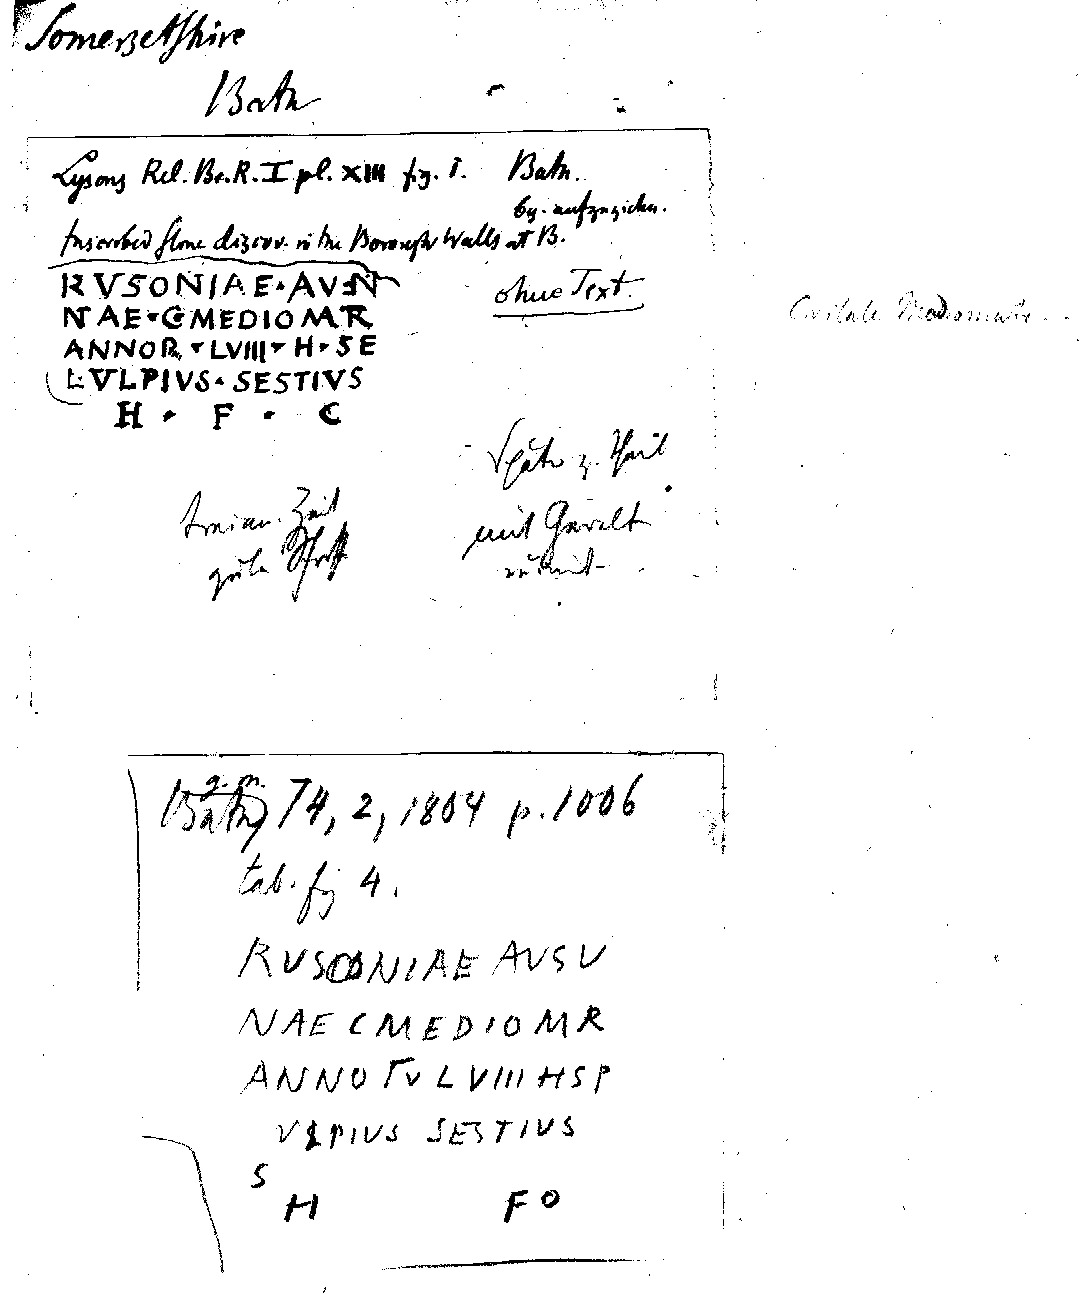 Somersetshire
Bath
Lysons Rel. Br. R. I pl. XIII fig. 1. Bath.
aufzuziehn.
Inscribed stone discov. in the Borough Walls at B.
RVSONIAE·AVEN
NAE·C·MEDIOMTR
ANNOR·LVIII·H·S·E
L·VLPIVS·SESTIVS
H · F · C
ohne Text
Civitate Mediomatr..
Später z. Theil
mit Gewalt
traian. Zeit
gute Schrift
g. m.
Bath 74, 2, 1804 p. 1006
tab. fig 4.
RVSONIAE AVSV
NAE C MEDIOMR
ANNO Γv LVIII HSP
VLPIVS SESTIVS
S
H FO